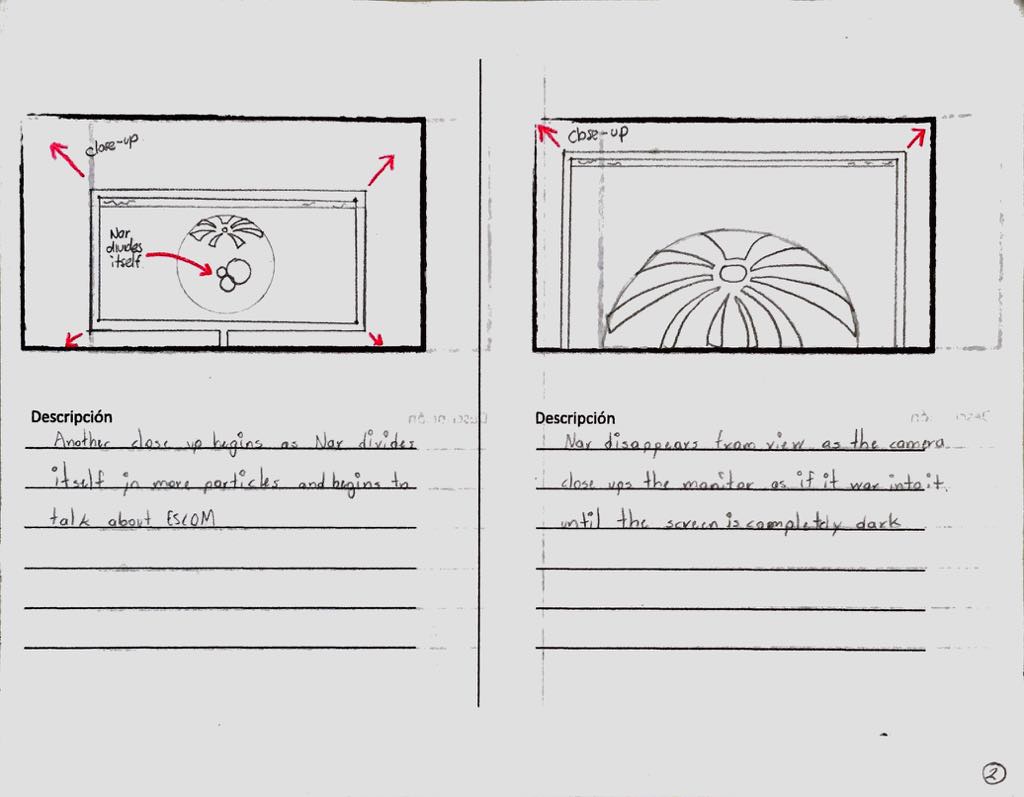 close-up
Nar
divides
itself
Descripción
Another close up begins as Nar divides
itself in more particles and begins to
talk about ESCOM
close-up
Descripción
Nar disappears from view as the camera
close ups the monitor as if it war into it.
until the screen is completely dark
2